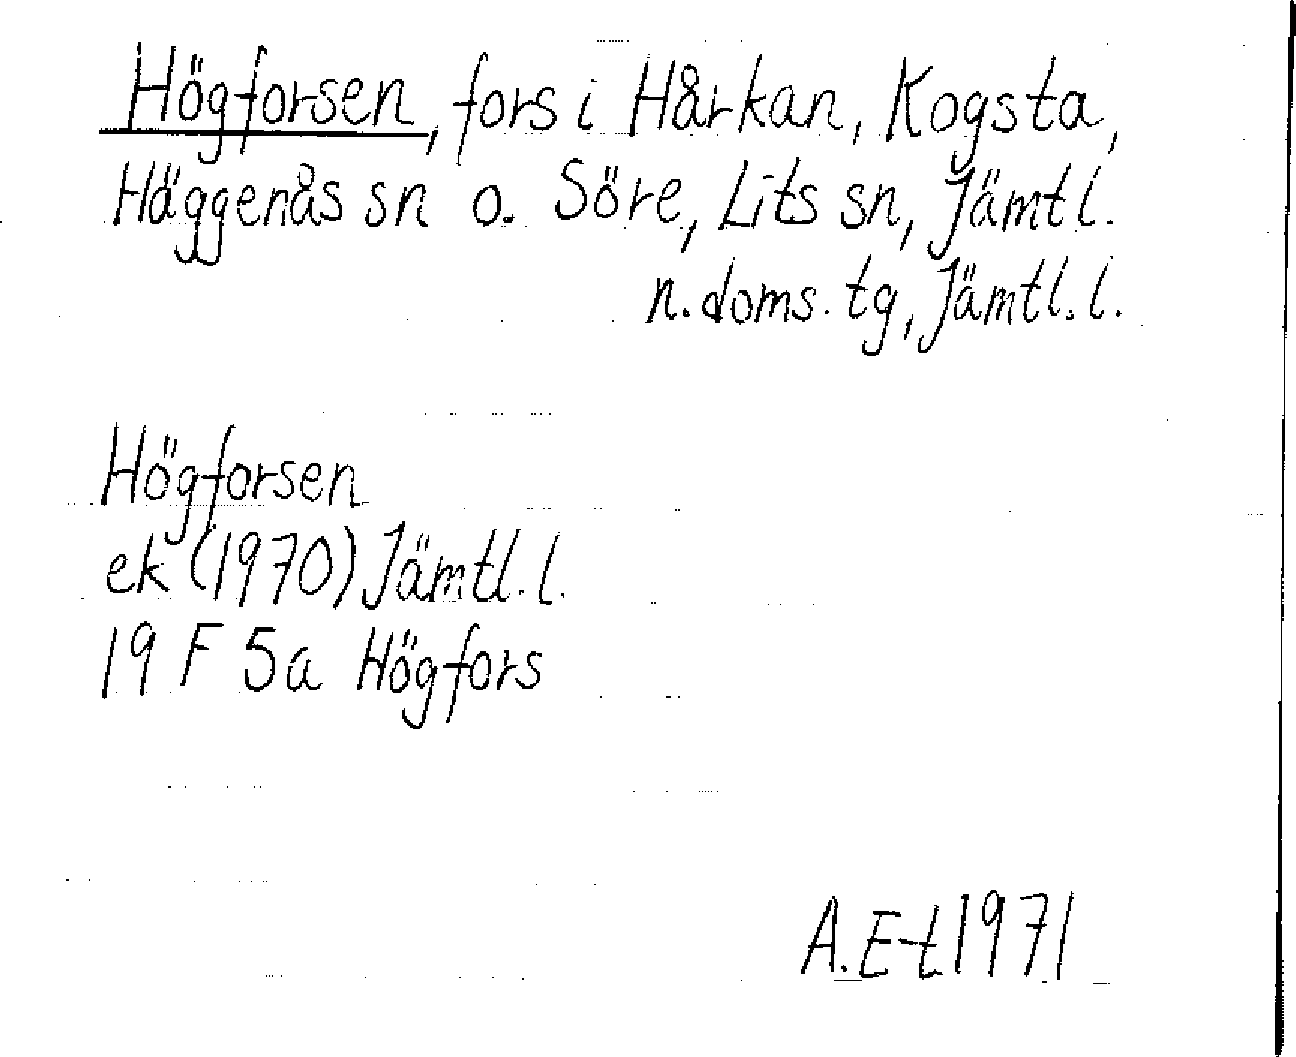 Högforsen, fors i Hårkan, Kogsta,
Häggenås sn o. Söre, Lits sn, Jämtl.
n. doms. tg, Jämtl. l.
Högforsen
ek (1970) Jämtl. l.
19 F 5a Högfors
A. E-t 1971